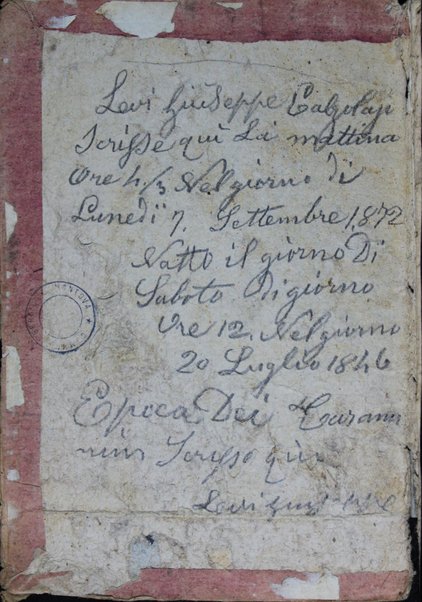 Levi Giuseppe
Scrisse qui La mattina
Ore 4/3 Nel giorno di
Lunedi 7. Settembre 1872
Natto il giorno Di
Sabato Di giorno
Ore 12. Nel giorno
20 Luglio 1846
Epoca Dei
Scrisse qui
Levi
MANTOVA